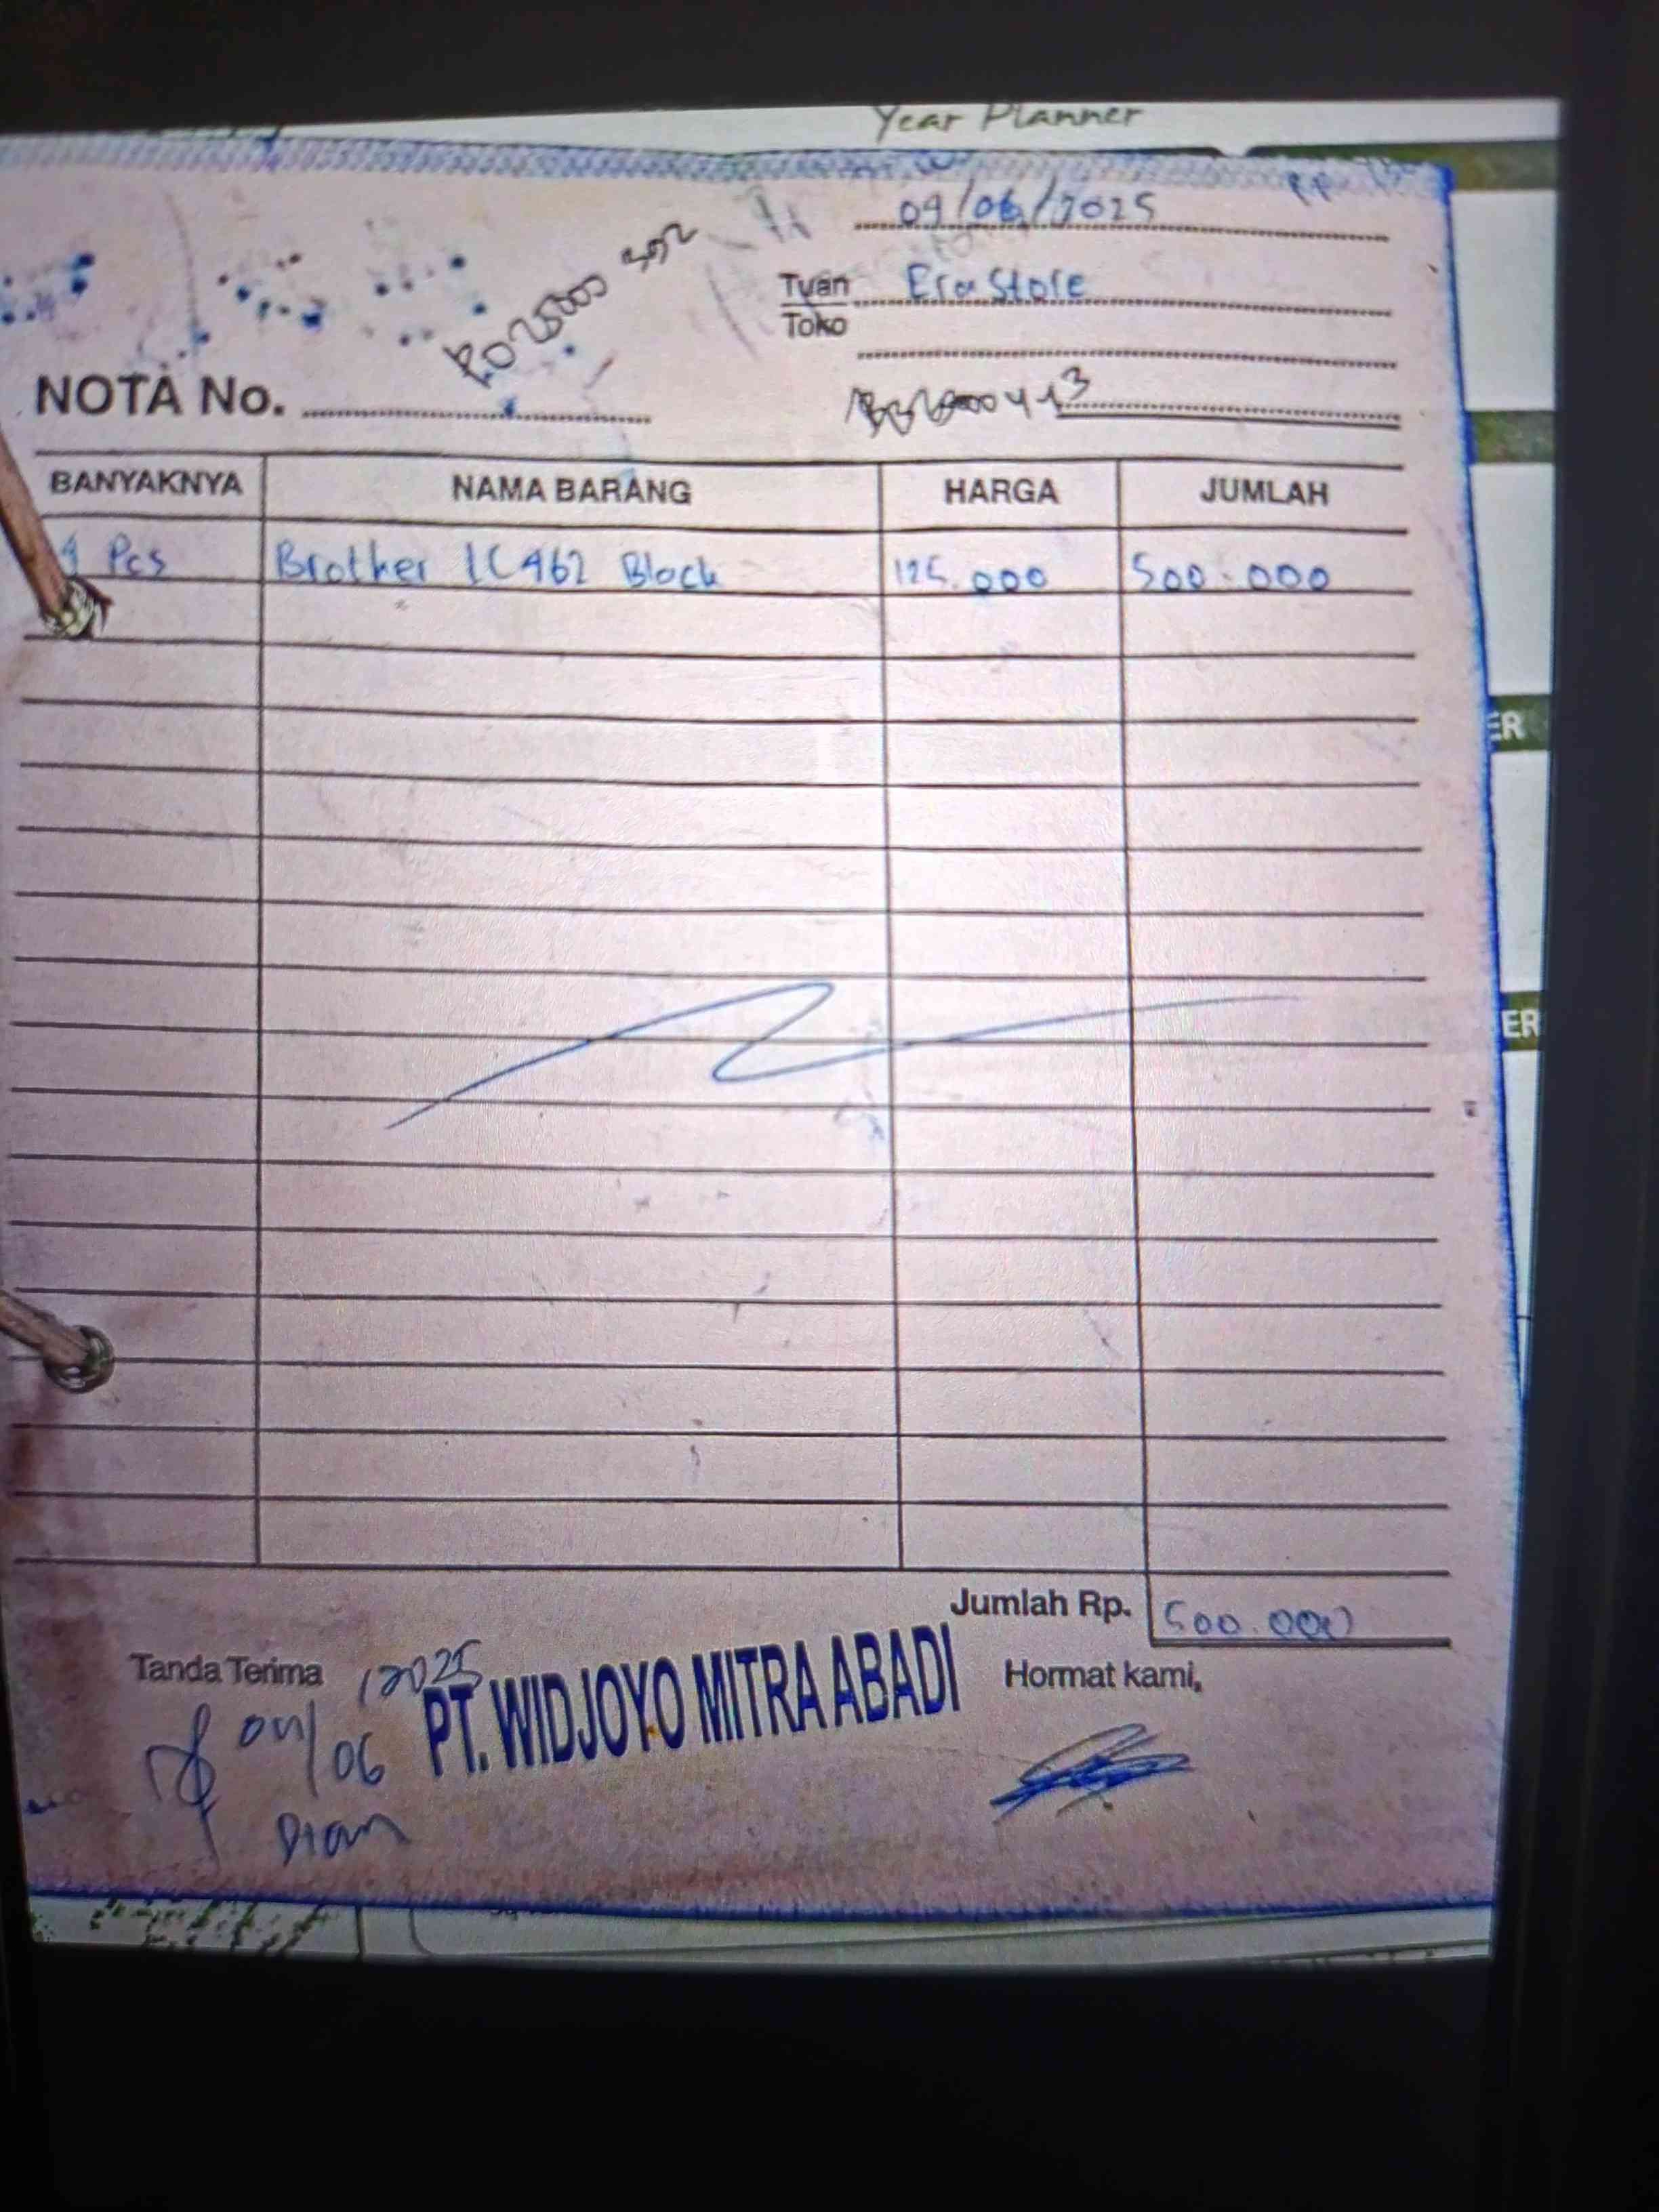 Year Planner
04/06/2025
Tuan Era Store
Toko
NOTA No.
BANYAKNYA NAMA BARANG HARGA JUMLAH
4 Pcs Brother LC 462 Black 125.000 500.000
ER
ER
Jumlah Rp. 500.000
Tanda Terima
04/06/2025
Dian
PT. WIDJOYO MITRA ABADI
Hormat kami,